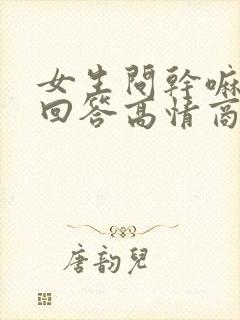 女生問幹嘛
回答高情商
唐韵兒